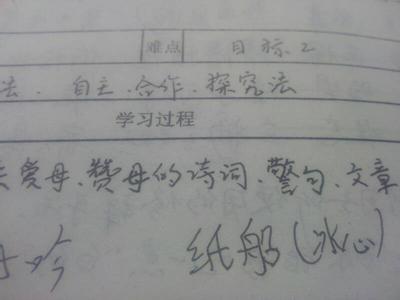 难点 目标2
法、自主、合作、探究法
学习过程
爱母、赞母的诗词、警句、文章
吟 纸船(冰心)